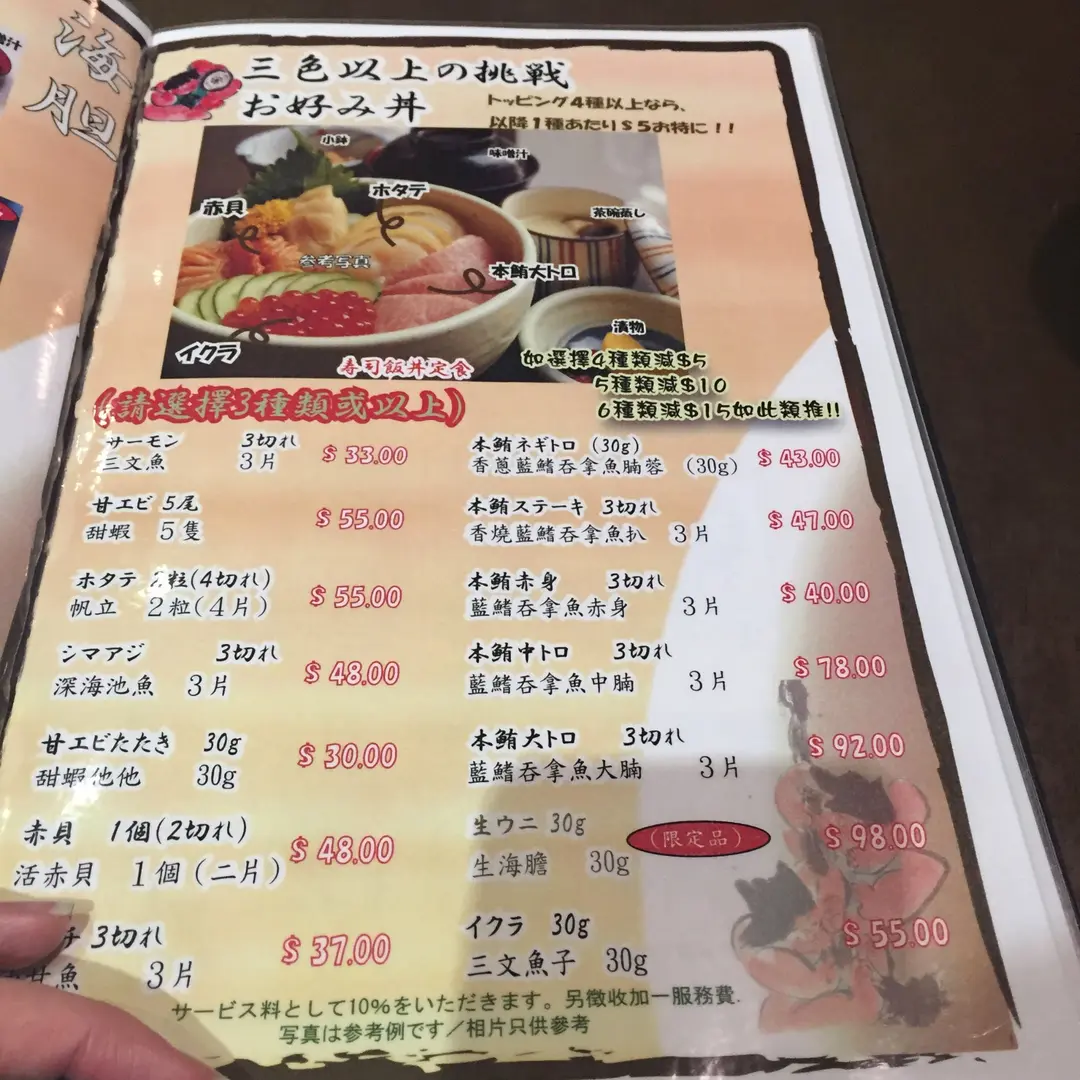 海胆
三色以上の挑戦
お好み丼
トッピング4種以上なら、
以降1種あたり$5お特に!!
小鉢
味噌汁
ホタテ
赤貝
茶碗蒸し
参考写真
本鮪大トロ
漬物
イクラ
寿司飯丼定食
如選擇4種類減$5
5種類減$10
6種類減$15如此類推!!
(請選擇3種類或以上)
サーモン 3切れ
三文魚 3片
$ 33.00
甘エビ 5尾
甜蝦 5隻
$ 55.00
ホタテ 2粒(4切れ)
帆立 2粒(4片)
$ 55.00
シマアジ 3切れ
深海池魚 3片
$ 48.00
甘エビたたき 30g
甜蝦他他 30g
$ 30.00
赤貝 1個(2切れ)
活赤貝 1個(二片)
$ 48.00
チ 3切れ
甘魚 3片
$ 37.00
本鮪ネギトロ (30g)
香蔥藍鰭吞拿魚腩蓉 (30g)
$ 43.00
本鮪ステーキ 3切れ
香燒藍鰭吞拿魚扒 3片
$ 47.00
本鮪赤身 3切れ
藍鰭吞拿魚赤身 3片
$ 40.00
本鮪中トロ 3切れ
藍鰭吞拿魚中腩 3片
$ 78.00
本鮪大トロ 3切れ
藍鰭吞拿魚大腩 3片
$ 92.00
生ウニ 30g
生海膽 30g
(限定品)
$ 98.00
イクラ 30g
三文魚子 30g
$ 55.00
サービス料として10%をいただきます。另徵收加一服務費.
写真は参考例です/相片只供參考